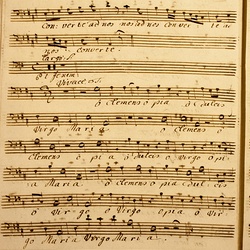 con: verte ad nos nos ad nos conver te
nos converte.
Largo.
Et Jesum.
Vivace.
ô Clemens ô pia ô dulcis
Virgo Maria ô Clemens ô
Clemens ô pia ô dulcis ô Virgo
a Maria ô Clemens ô pia dul cis
ô Vir- go ô Virgo ô pia ô Vir-
go Maria Virgo Maria.